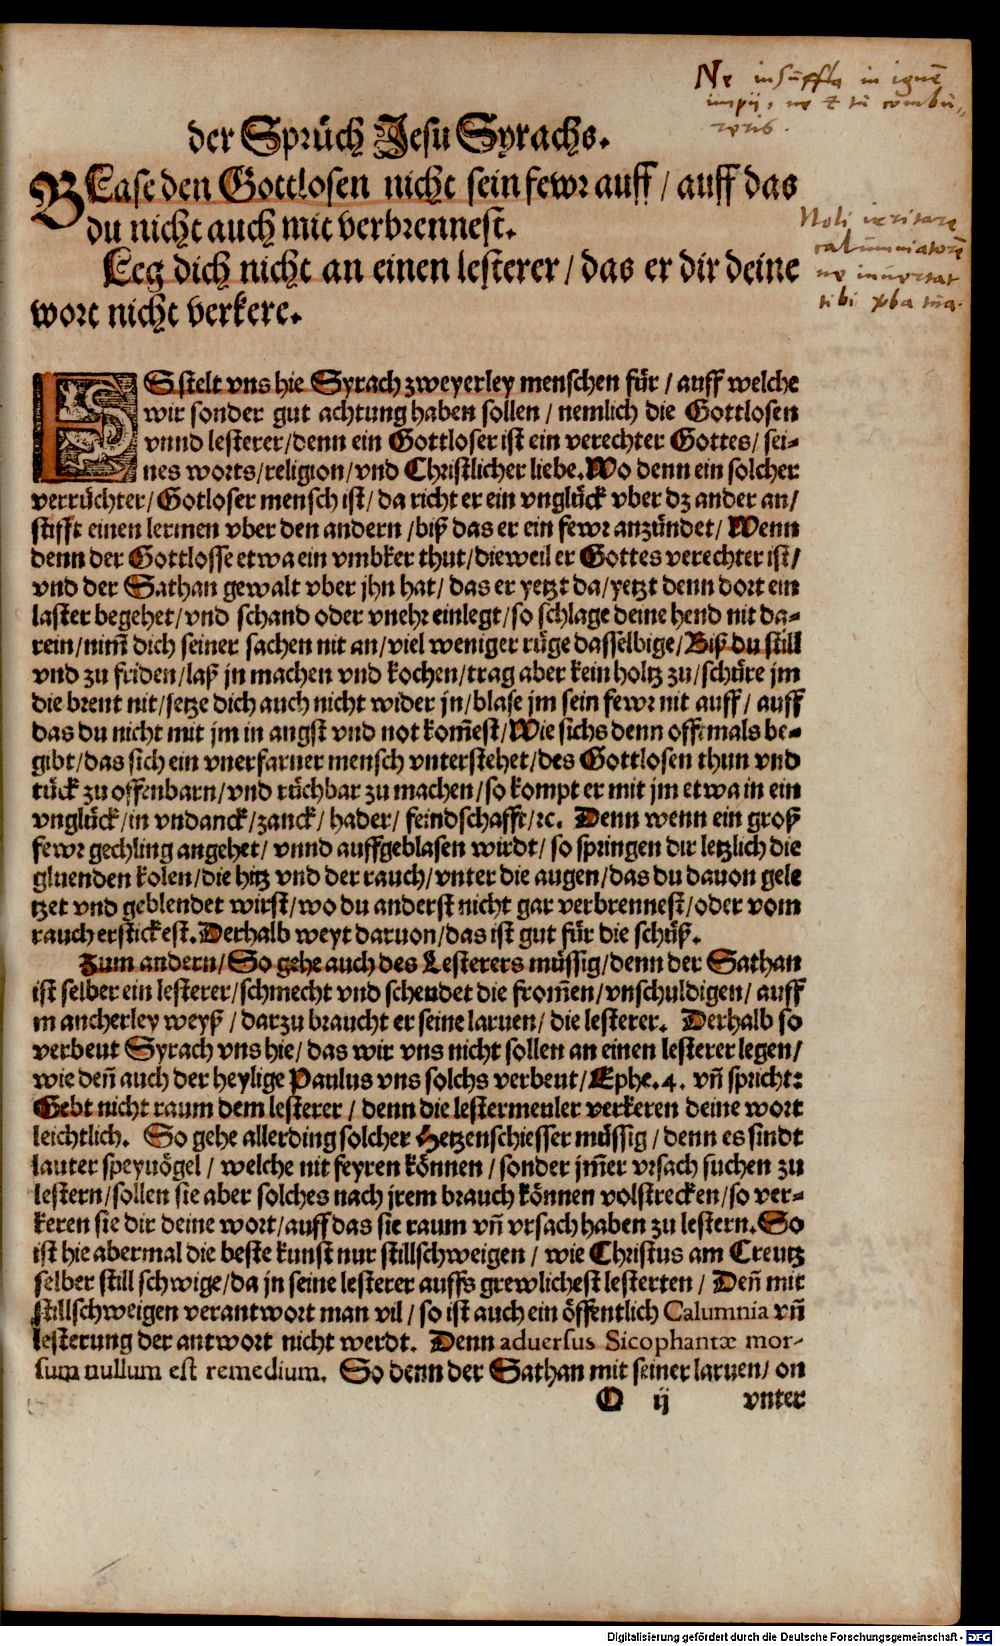 Ne insuffla in ignē
impij, ne et tū combu-
reris.
der Sprüch Jesu Syrachs.
BLase den Gottlosen nicht sein fewr auff / auff das
du nicht auch mit verbrennest.
Noli irritare
calūmniatorē
ne invertat
tibi verba tua.
Leg dich nicht an einen lesterer / das er dir deine
wort nicht verkere.
ES stelt vns hie Syrach zweyerley menschen für / auff welche
wir sonder gut achtung haben sollen / nemlich die Gottlosen
vnnd lesterer / denn ein Gottloser ist ein verechter Gottes / sei-
nes worts / religion / vnd Christlicher liebe. Wo denn ein solcher
verrüchter / Gotloser mensch ist / da richt er ein vnglück vber dz ander an /
stifft einen lermen vber den andern / biß das er ein fewr anzündet / Wenn
denn der Gottlosse etwa ein vmbker thut / dieweil er Gottes verechter ist /
vnd der Sathan gewalt vber jhn hat / das er yetzt da / yetzt denn dort ein
laster begehet / vnd schand oder vnehr einlegt / so schlage deine hend nit da-
rein / nim̄ dich seiner sachen nit an / viel weniger rüge dasselbige / Biß du still
vnd zu friden / laß jn machen vnd kochen / trag aber kein holtz zu / schüre jm
die brent nit / setze dich auch nicht wider jn / blase jm sein fewr nit auff / auff
das du nicht mit jm in angst vnd not kom̄est / Wie sichs denn offtmals be-
gibt / das sich ein vnerfarner mensch vnterstehet / des Gottlosen thun vnd
tück zu offenbarn / vnd rüchbar zu machen / so kompt er mit jm etwa in ein
vnglück / in vndanck / zanck / hader / feindschafft / ꝛc. Denn wenn ein groß
fewr gechling angehet / vnnd auffgeblasen wirdt / so springen dir letzlich die
gluenden kolen / die hitz vnd der rauch / vnter die augen / das du dauon gele
tzet vnd geblendet wirst / wo du anderst nicht gar verbrennest / oder vom
rauch erstickest. Derhalb weyt daruon / das ist gut für die schüß.
Zum andern / So gehe auch des Lesterers müssig / denn der Sathan
ist selber ein lesterer / schmecht vnd schendet die from̄en / vnschuldigen / auff
mancherley weyß / darzu braucht er seine laruen / die lesterer. Derhalb so
verbeut Syrach vns hie / das wir vns nicht sollen an einen lesterer legen /
wie den̄ auch der heylige Paulus vns solchs verbeut / Ephe. 4. vn̄ spricht:
Gebt nicht raum dem lesterer / denn die lestermeuler verkeren deine wort
leichtlich. So gehe allerding solcher Hetzenschiesser müssig / denn es sindt
lauter speyuögel / welche nit feyren können / sonder jm̄er vrsach suchen zu
lestern / sollen sie aber solches nach jrem brauch können volstrecken / so ver-
keren sie dir deine wort / auff das sie raum vn̄ vrsach haben zu lestern. So
ist hie abermal die beste kunst nur stillschweigen / wie Christus am Creutz
selber still schwige / da jn seine lesterer auffs grewlichest lesterten / Den̄ mit
stillschweigen verantwort man vil / so ist auch ein öffentlich Calumnia vn̄
lesterung der antwort nicht werdt. Denn adversus Sicophantæ mor-
sum nullum est remedium. So denn der Sathan mit seiner laruen / on
O ij vnter
Digitalisierung gefördert durch die Deutsche Forschungsgemeinschaft - DFG